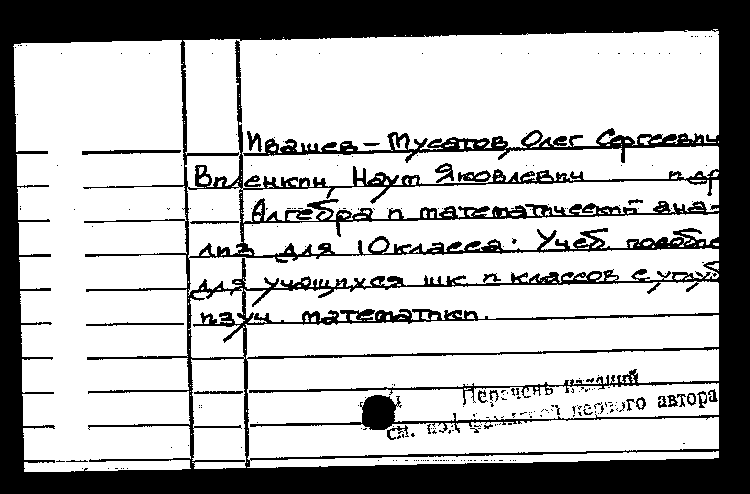 Ивашев-Мусатов, Олег Сергеевич
Виленкин, Наум Яковлевич и др
Алгебра и математический ана-
лиз для 10 класса: Учеб. пособие
для учащихся шк и классов с углуб
изуч. математики.
Перечень изданий
см. под фамилией первого автора